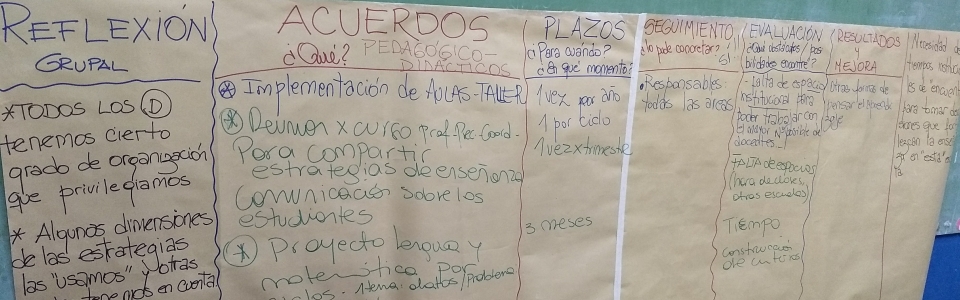 REFLEXIÓN
GRUPAL
*TODOS LOS Ⓓ
tenemos cierto
grado de organización
que privilegiamos
* Algunas dimensiones
de las estrategias
las "usamos" y otras
tenemos en cuenta
ACUERDOS
¿Qué? PEDAGÓGICO-
DIDÁCTICOS
* Implementación de AULAS-TALLER
* Reunión x curso Prof-Prec-Coord-
Para compartir
estrategias de enseñanza
Comunicación sobre los
estudiantes
* Proyecto lengua y
matemática por
ciclos.
PLAZOS
¿Para cuándo?
¿En qué momento?
1 vez por año
1 por ciclo
1 vez x trimestre
3 meses
SEGUIMIENTO
lo pude concretar?
sí
Responsables:
todas las areas
EVALUACIÓN
¿Qué obstáculos / pos
bilidades encontré?
Falta de espacio
institucional para
poder trabajar con
el mayor Nº posible de
docentes.
FALTA de espacios
(hora de clases,
otras escuelas)
TIEMPO
construcción
de criterios
RESULTADOS
Y
MEJORA
Otras formas de
pensar el aprendi
zaje
Necesidad de
tiempos
de encuen
para tomar de